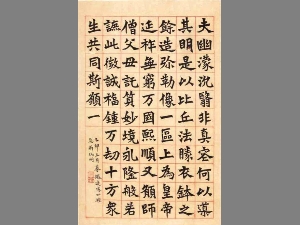 夫幽濛沉翳非真容何以導
其明是以比丘法勝衣鉢之
餘造弥勒像一區上為皇帝
延祚無窮万國熙順又願師
僧父母託質妙境永隆般若
此微誠福鍾万劫十方衆
生共同斯願一